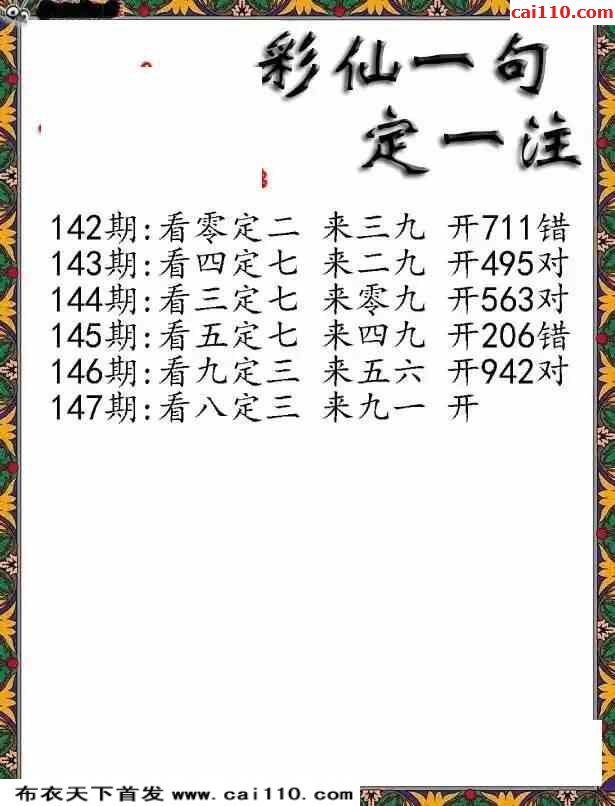 cai110.com
彩仙一句
定一注
142期:看零定二 来三九 开711错
143期:看四定七 来二九 开495对
144期:看三定七 来零九 开563对
145期:看五定七 来四九 开206错
146期:看九定三 来五六 开942对
147期:看八定三 来九一 开
布衣天下首发 www.cai110.com